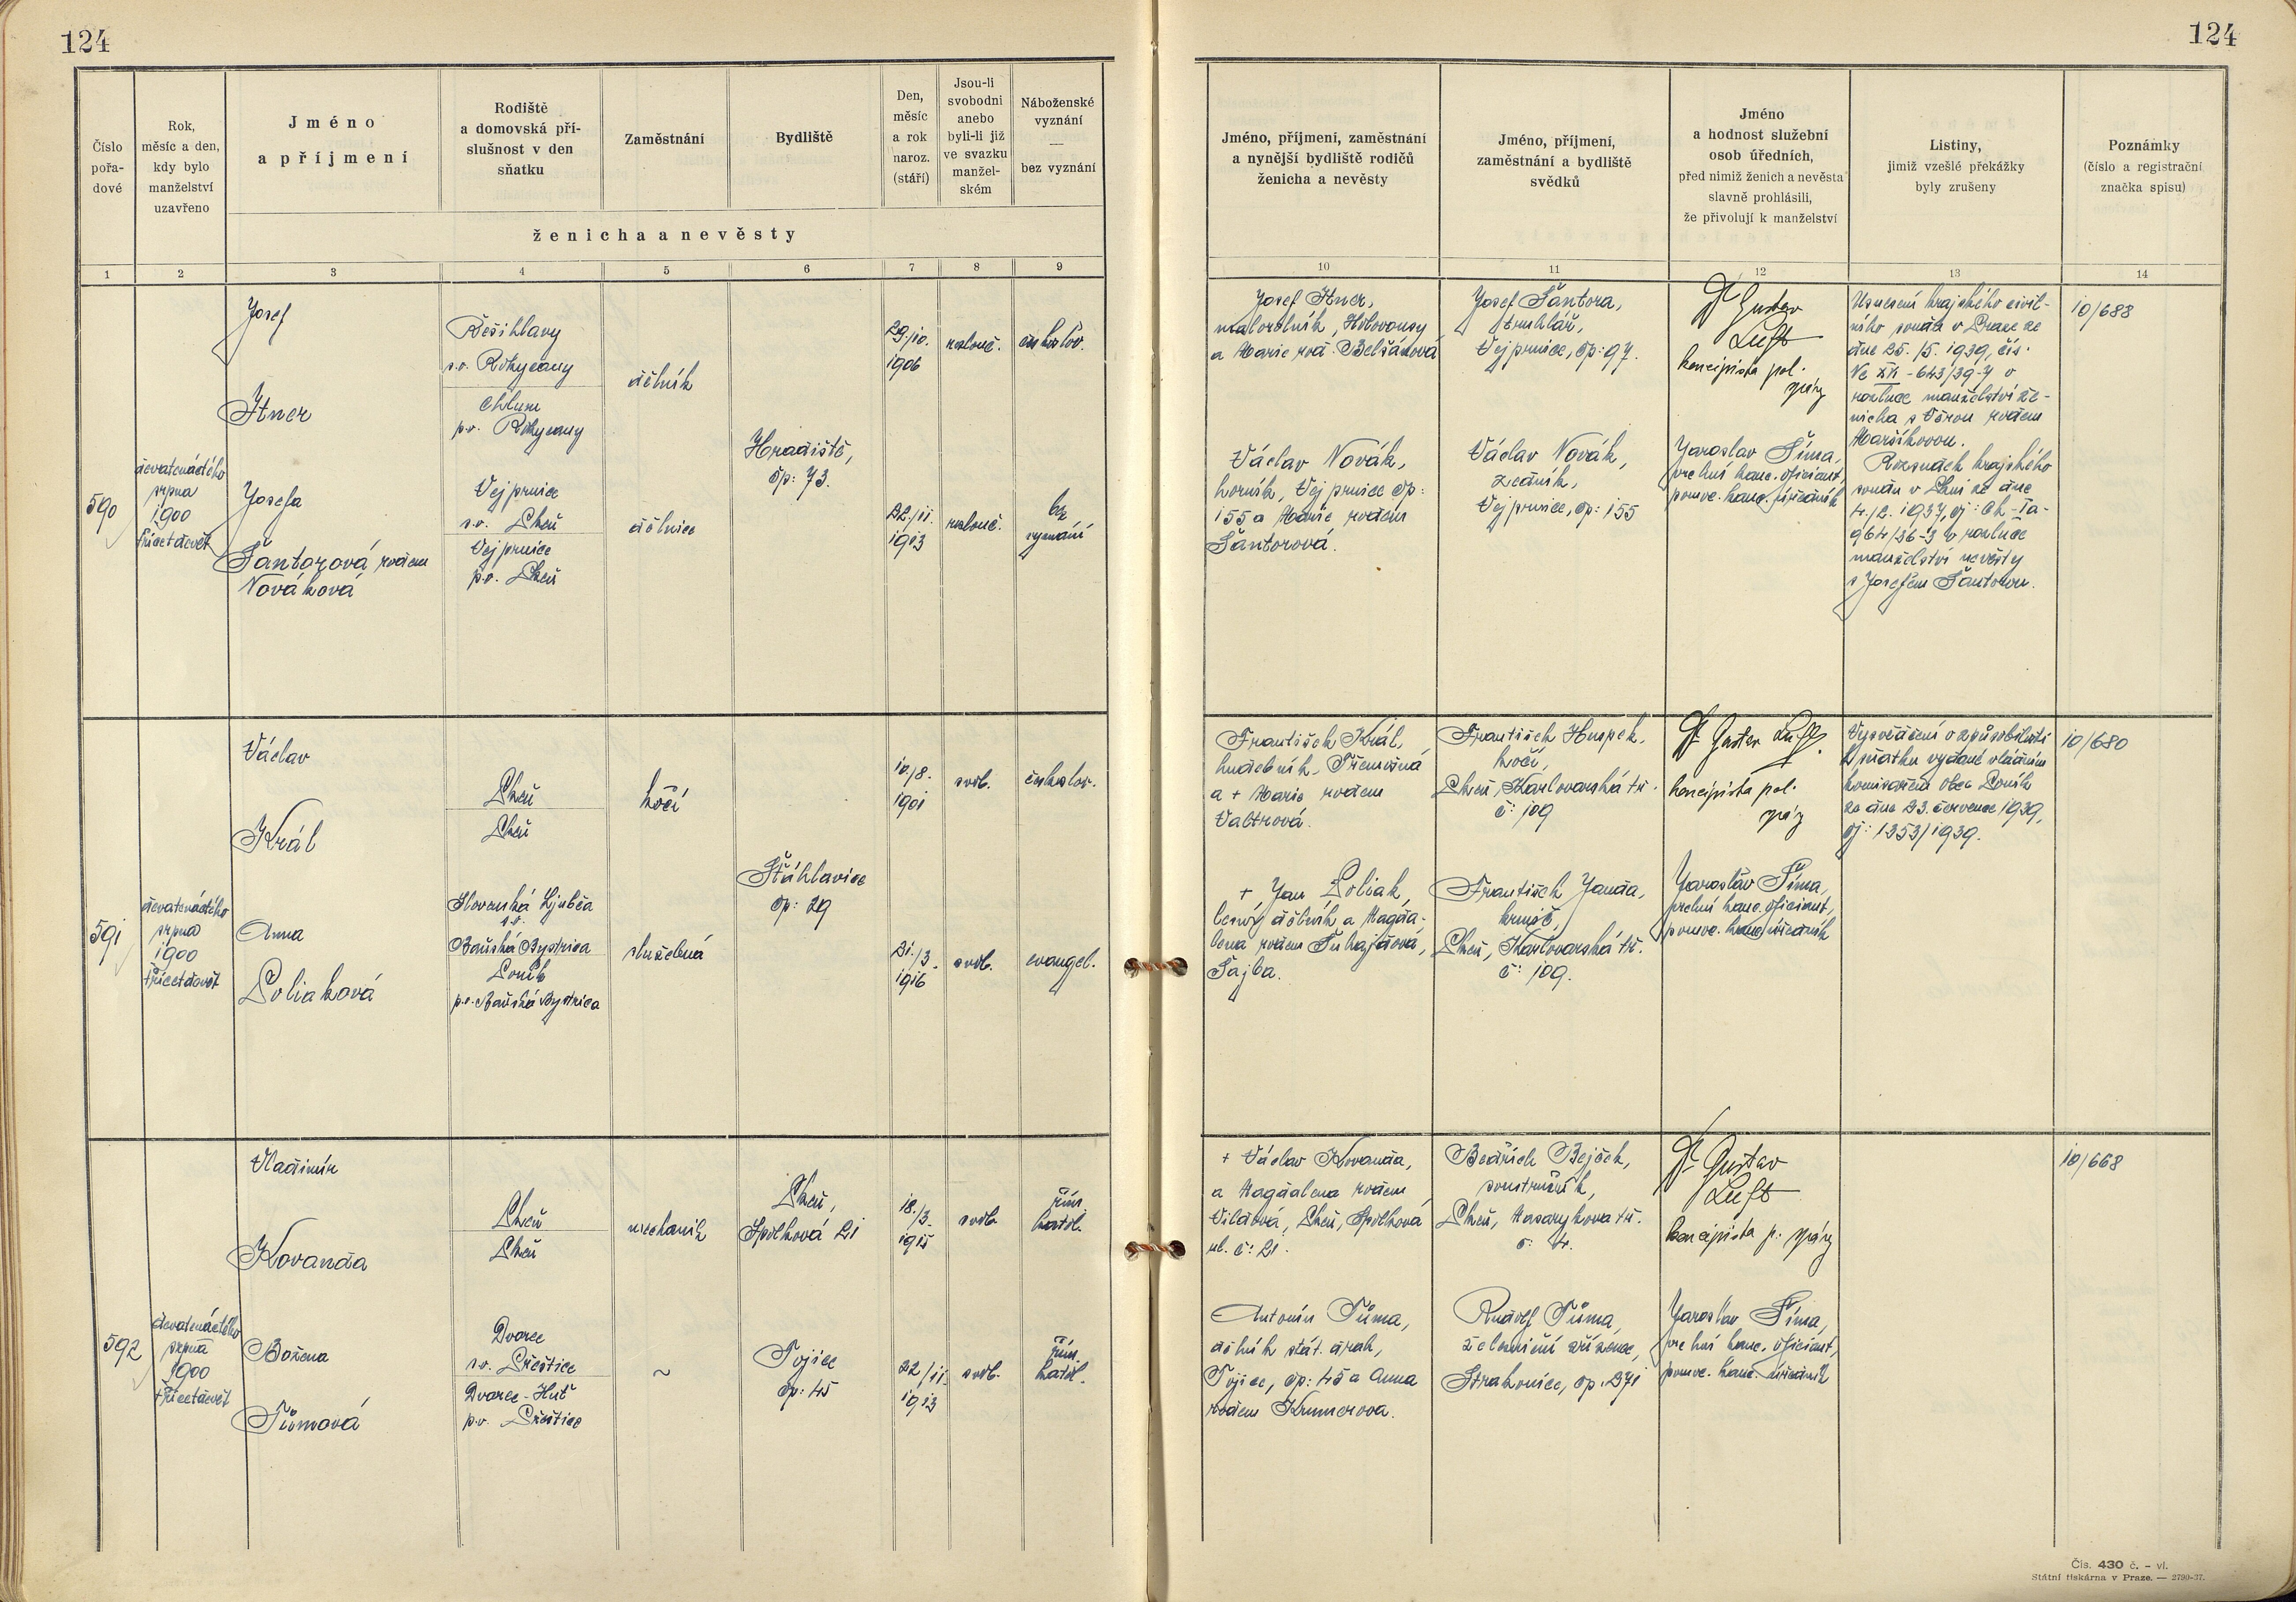 124
124
Číslo pořa-dové
Rok, měsíc a den, kdy bylo manželství uzavřeno
Jméno a příjmení
Rodiště a domovská pří-slušnost v den sňatku
Zaměstnání
Bydliště
Den, měsíc a rok naroz. (stáří)
Jsou-li svobodni anebo byli-li již ve svazku manžel-ském
Náboženské vyznání — bez vyznání
ženicha a nevěsty
Jméno, příjmení, zaměstnání a nynější bydliště rodičů ženicha a nevěsty
Jméno, příjmení, zaměstnání a bydliště svědků
Jméno a hodnost služební osob úředních, před nimiž ženich a nevěsta slavně prohlásili, že přivolují k manželství
Listiny, jimiž vzešlé překážky byly zrušeny
Poznámky (číslo a registrační značka spisu)
1 2 3 4 5 6 7 8 9 10 11 12 13 14
590
devatenáctého
srpna
1900
třicetdevět
Josef
Itner
s.o. Rokycany
Chlum
p.o. Rokycany
dělník
Hradiště,
čp: 73.
29./10.
1906
rozlouč.
českoslov.
Josefa
Šantorová rodem
Nováková
Vejprnice
s.o. Plzeň
Vejprnice
p.o. Plzeň
dělnice
22/11.
1913
rozlouč.
bez
vyznání
Josef Itner,
malorolník, Holovousy
a Marie rod. Belšánová
Václav Novák,
horník, Vejprnice čp:
155 a Marie rodem
Šantorová.
Josef Šantora,
truhlář,
Vejprnice, čp: 97.
Václav Novák,
zedník,
Vejprnice, čp: 155
Dr Gustav
Luft
koncipista pol.
správy
Jaroslav Šíma,
vrchní kanc. oficiant,
pomoc. kanc. úředník
Usnesení krajského civil-
ního soudu v Praze ze
dne 25./5. 1939, čís.
Nc XII-643/39-7 o
rozluce manželství že-
nicha s Věrou rodem
Maršíkovou.
Rozsudek krajského
soudu v Plzni ze dne
4./2. 1937, čj: Ck-Ia-
964/36-3 o rozluce
manželství nevěsty
s Josefem Šantorou.
10/688
591
devatenáctého
srpna
1900
třicetdevět
Václav
Král
Plzeň
Plzeň
kočí
Šťáhlavice
čp: 29
10./8.
1901
svob.
českoslov.
Anna
Poliaková
Slovenská Ljubča
s.o.
Baňská Bystrica
Poník
p.o. Baňská Bystrica
služebná
21./3.
1916
svob.
evangel.
František Král,
hudebník, Třemošná
a + Marie rodem
Valtrová.
+ Jan Poliak,
lesný dělník a Magda-
lena rodem Šuhajdová,
Šajba.
František Huspek,
kočí,
Plzeň, Karlovarská tř.
č: 109
František Janda,
Plzeň, Karlovarská tř.
č: 109.
Dr Gustav Luft
koncipista pol.
správy
Jaroslav Šíma,
vrchní kanc. oficiant,
pomoc. kanc. úředník
Vysvědčení o způsobilosti
k sňatku vydané vládním
komisařem obec Poník
ze dne 23. července 1939,
čj: 1353/1939.
10/680
592
devatenáctého
srpna
1900
třicetdevět
Vladimír
Kovanda
Plzeň
Plzeň
mechanik
Plzeň,
Spolková 21
18./3.
1915
svob.
řím.
katol.
Božena
Tůmová
Dvorec
s.o. Přeštice
Dvorec-Huť
p.o. Přeštice
~
Tojice
čp: 45
22/11.
1913
svob.
řím.
katol.
+ Václav Kovanda,
a Magdalena rodem
Vildová, Plzeň, Spolková
ul. č: 21.
Antonín Tůma,
dělník stát. drah,
Tojice, čp: 45 a Anna
rodem Krumerova.
Bedřich Bejček,
soustružník,
Plzeň, Masarykova tř.
č: 4.
Rudolf Tůma,
železniční zřízenec,
Strakonice, čp. 371
Dr Gustav
Luft
koncipista p. správy
Jaroslav Šíma,
vrchní kanc. oficiant,
pomoc. kanc. úředník
10/668
Čís. 430 č. - vl.
Státní tiskárna v Praze. — 2790-37.